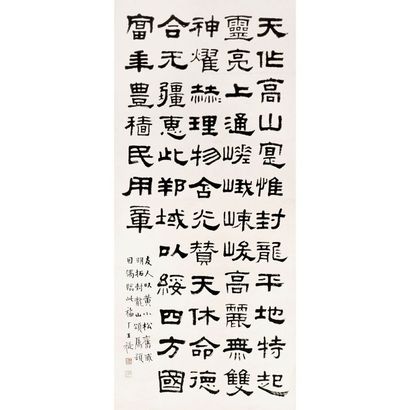 天作高山寔惟封龍平地特起
靈亮上通嵯峨崍峻高麗無雙
神燿赫理物含光贊天休命德
合无疆惠此邦域以綏四方國
富年豊穡民用章
友人以黃小松舊藏
明拓封龍山頌屬
因臨此